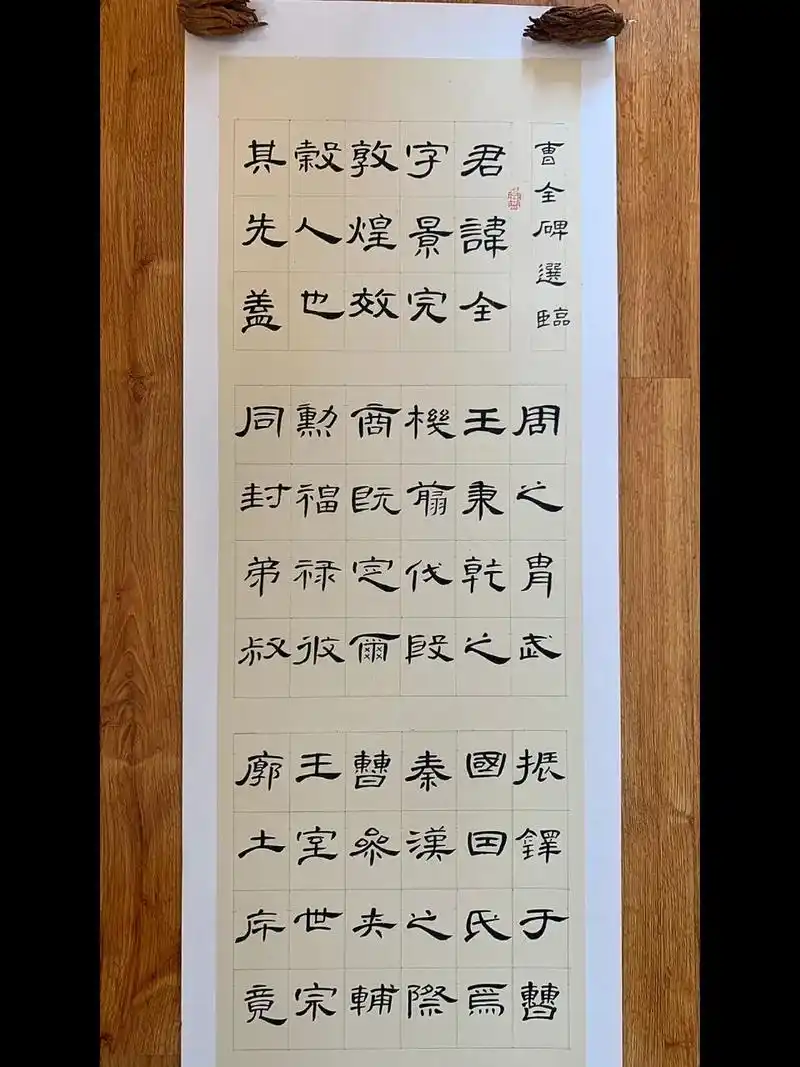 曹全碑選臨
君諱全
字景完
敦煌效
穀人也
其先盖
周之胄武
王秉乾之
機翦伐殷
商既定爾
勳福禄攸
同封弟叔
振鐸于曹
國因氏焉
秦漢之際
曹參夾輔
王室世宗
廓土斥竟